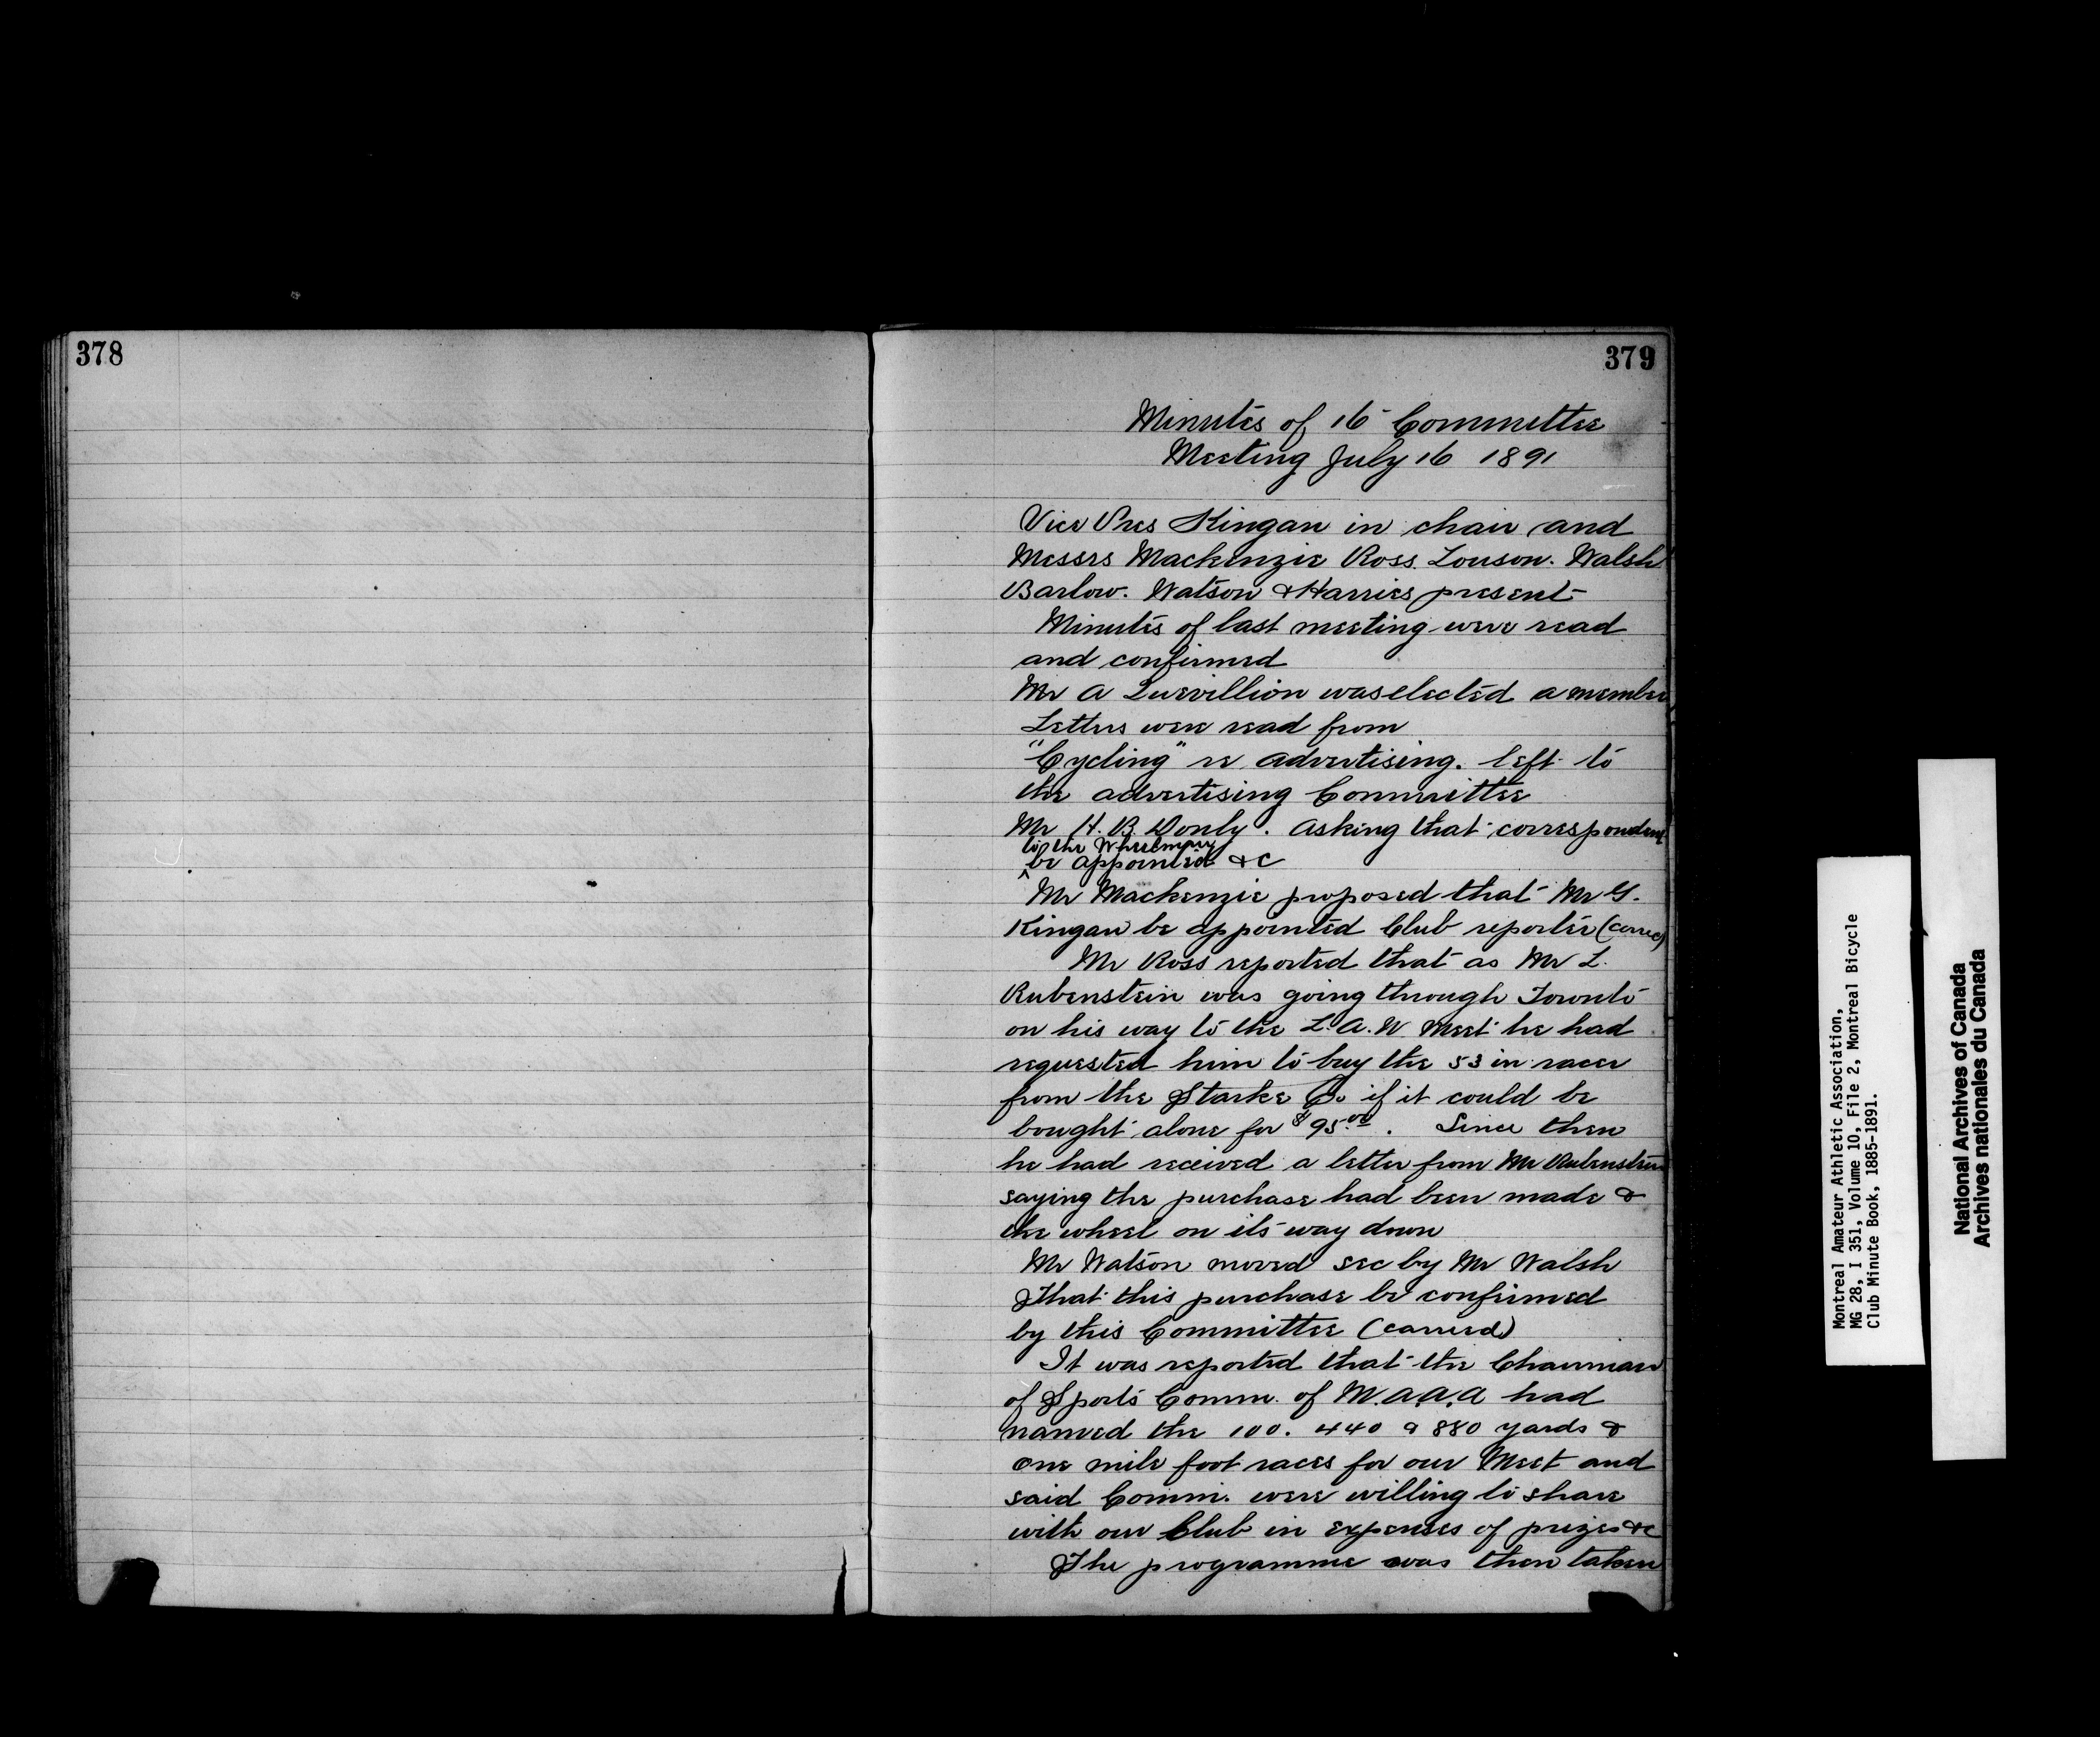 378
379
Minutes of 16 Committee
Meeting July 16 1891
Vice Pres Kingan in chair and
Messrs Mackenzie Ross. Louson. Walsh
Barlow. Watson & Harries present
Minutes of last meeting were read
and confirmed
Mr A Quevillion was elected a member
Letters were read from
"Cycling" re advertising. left to
the advertising Committee
Mr H. B. Donly. Asking that correspondent
to the Wheelman
^ be appointed &c
Mr Mackenzie proposed that Mr G.
Kingan be appointed Club reporter (carried)
Mr Ross reported that as Mr L.
Rubenstein was going through Toronto
on his way to the L.A.W meet he had
requested him to buy the 53 in racer
from the Starke Co if it could be
bought alone for $95.00. Since then
he had received a letter from Mr Rubenstein
saying the purchase had been made &
the wheel on its way down
Mr Watson moved sec by Mr Walsh
That this purchase be confirmed
by this Committee (carried)
It was reported that the Chairman
of Sports Comm. of M.A.A.A had
named the 100. 440 & 880 yards &
one mile foot races for our Meet and
said Comm. were willing to share
with our Club in expenses of prizes &c
The programme was then taken
Montreal Amateur Athletic Association,
MG 28, I 351, Volume 10, File 2, Montreal Bicycle
Club Minute Book, 1885-1891.
National Archives of Canada
Archives nationales du Canada